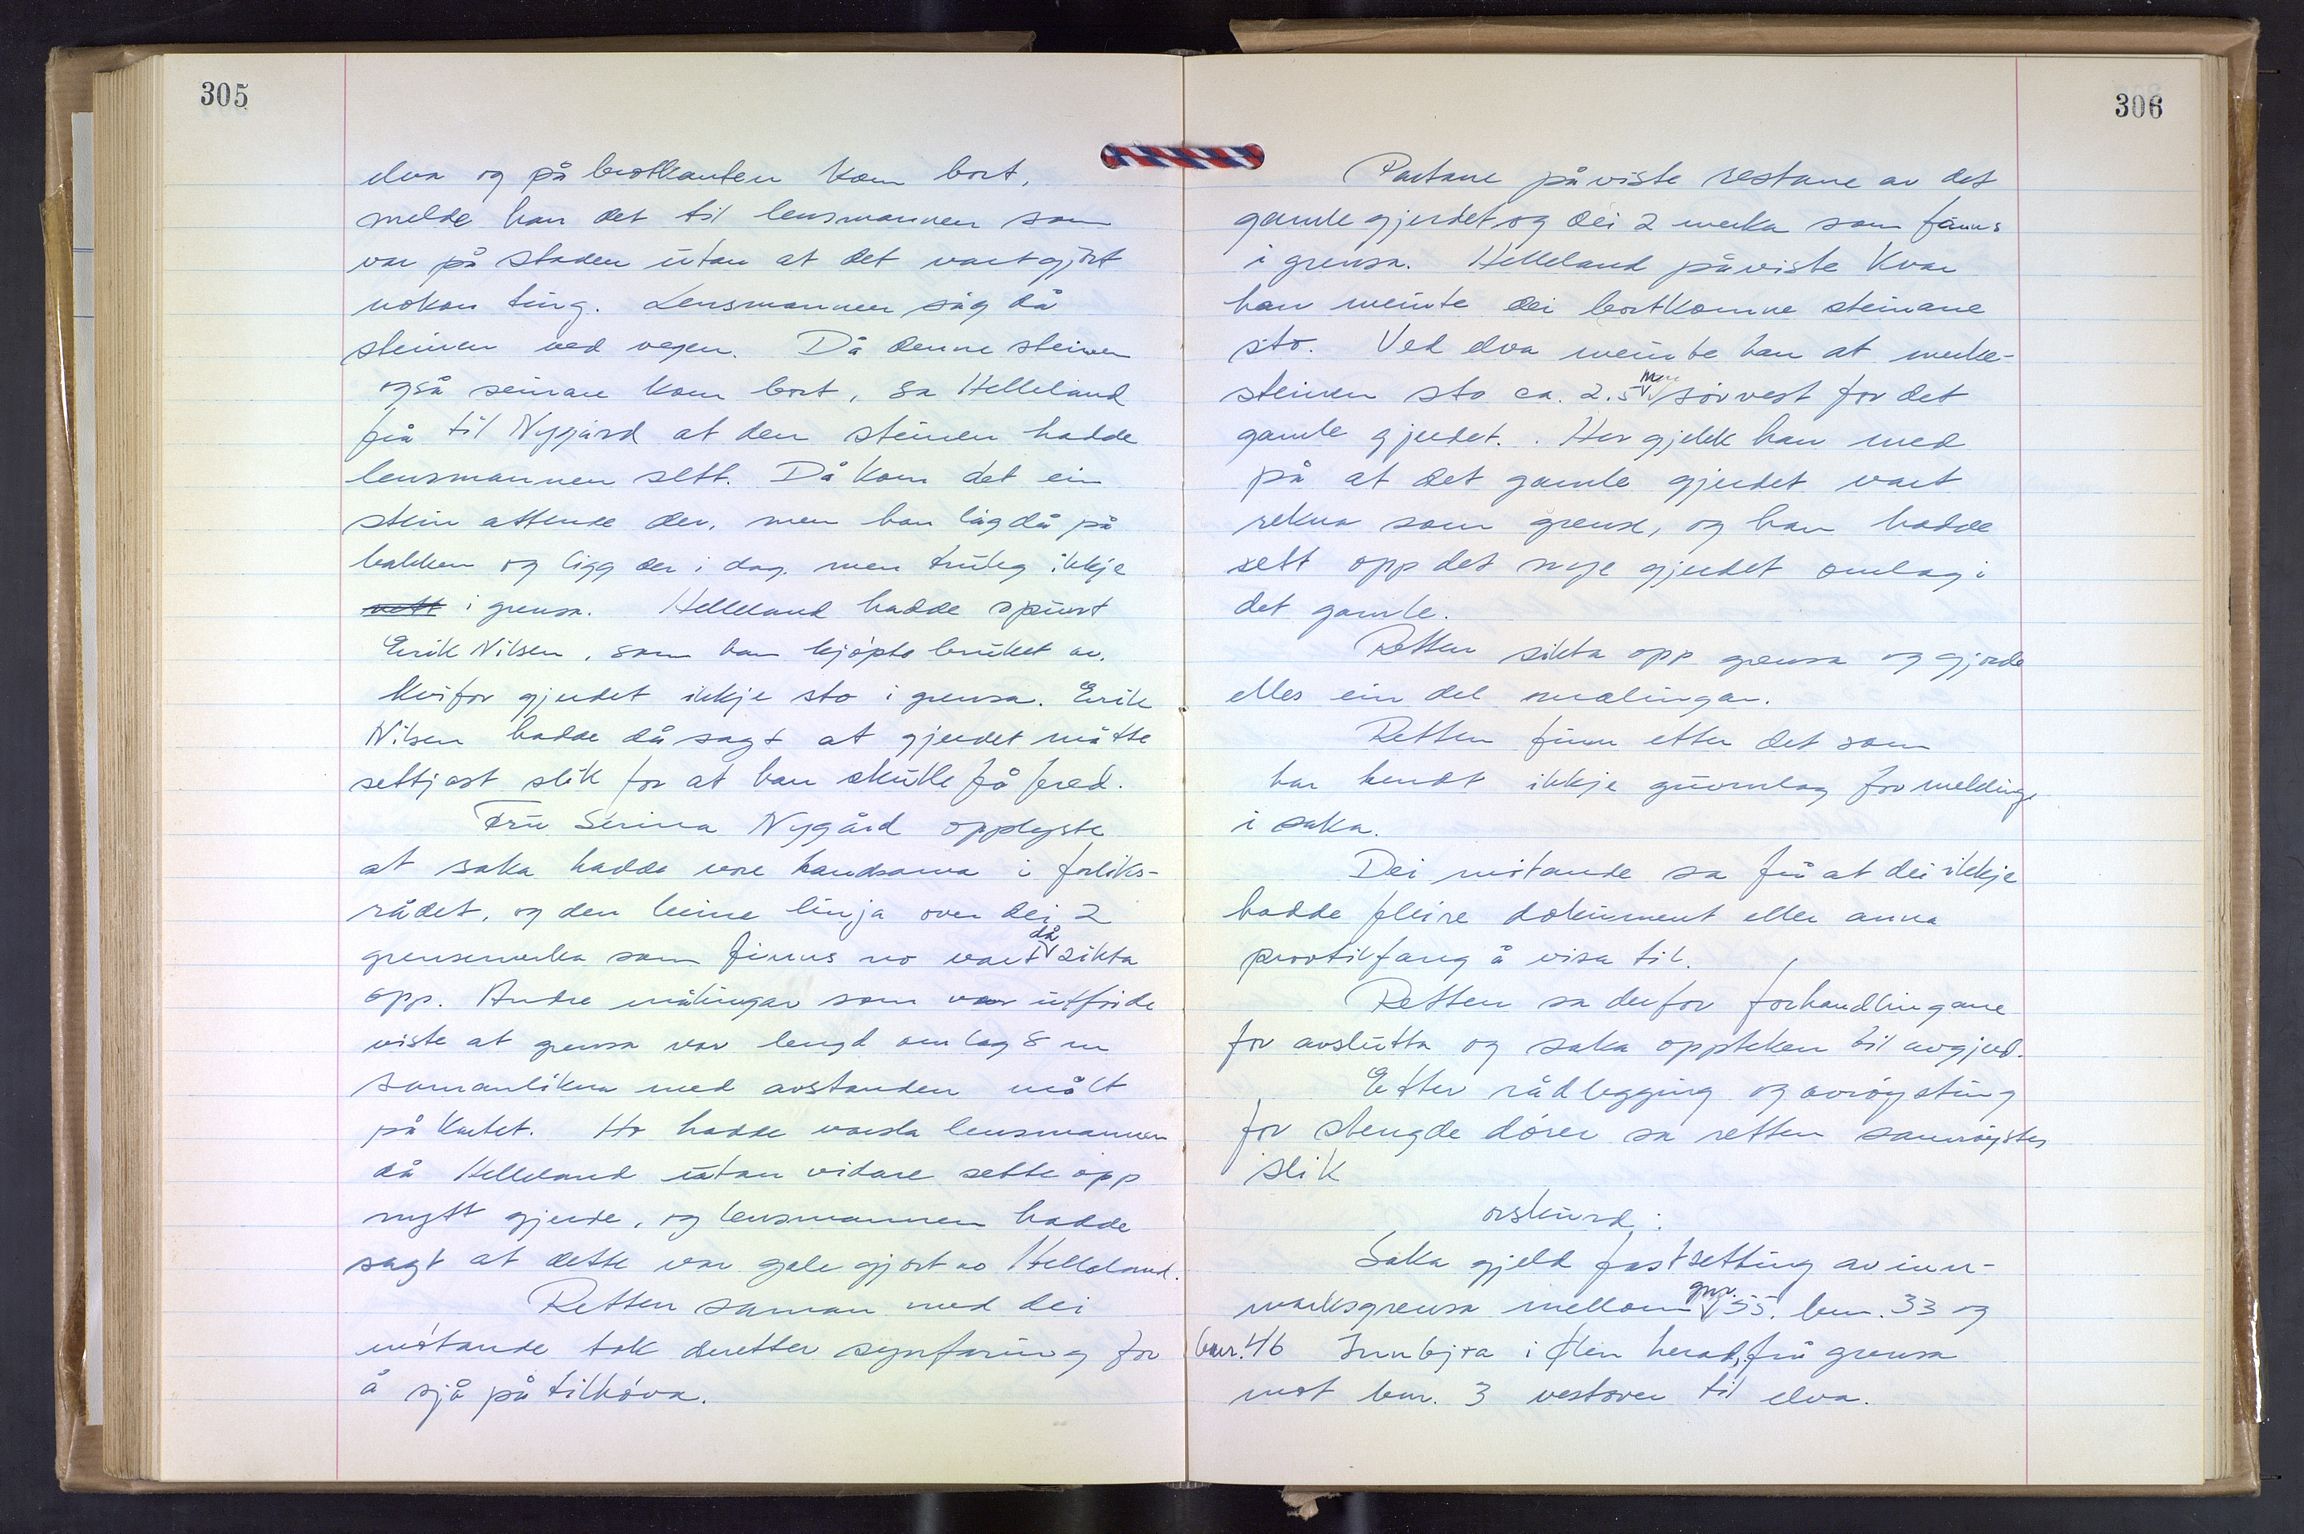 305
elva og på brotkanten kom bort,
melde han det til lensmannen som
var på staden utan at det vart gjort
nokon ting. Lensmannen såg då
steinen ved vegen. Då denne steinen
også seinare kom bort, sa Helleland
frå til Nygård at den steinen hadde
lensmannen sett. Då kom det ein
stein attende der, men han låg då på
bakken og ligg der i dag, men truleg ikkje
rett i grensa. Helleland hadde spurt
Erik Nilsen, som han kjøpte bruket av,
kvifor gjerdet ikkje sto i grensa. Erik
Nilsen hadde då sagt at gjerdet måtte
settjast slik for at han skulle få fred.
Fru Serina Nygård opplyste
at saka hadde vore handsama i forliks-
rådet, og den beine linja over dei 2
grensemerka som finns no vart då sikta
opp. Andre målingar som var utførde
viste at grensa var lengd om lag 8 m
samanlikna med avstanden målt
på kartet. Ho hadde varsla lensmannen
då Helleland utan vidare sette opp
nytt gjerde, og lensmannen hadde
sagt at dette var gale gjort av Helleland.
Retten saman med dei
møtande tok deretter synfaring for
å sjå på tilhøva.
306
Partane påviste restane av det
gamle gjerdet og dei 2 merka som finns
i grensa. Helleland påviste kvar
han meinte dei bortkomne steinane
sto. Ved elva meinte han at merke-
steinen sto ca. 2.5 m sørvest for det
gamle gjerdet. Her gjekk han med
på at det gamle gjerdet vart
rekna som grense, og han hadde
sett opp det nye gjerdet omlag i
det gamle.
Retten sikta opp grensa og gjorde
elles ein del målingar.
Retten finn etter det som
har hendt ikkje grunnlag for melding
i saka.
Dei møtande sa frå at dei ikkje
hadde fleire dokument eller anna
provtilfang å visa til.
Retten sa derfor forhandlingane
for avslutta og saka oppteken til avgjerd.
Etter rådlegging og avrøysting
for stengde dører sa retten samrøystes
slik
orskurd:
Saka gjeld fastsetting av inn-
marksgrensa mellom gnr. 55, bnr. 33 og
bnr. 46 Innbjoa i Ølen herad, frå grensa
mot bnr. 3 vestover til elva.